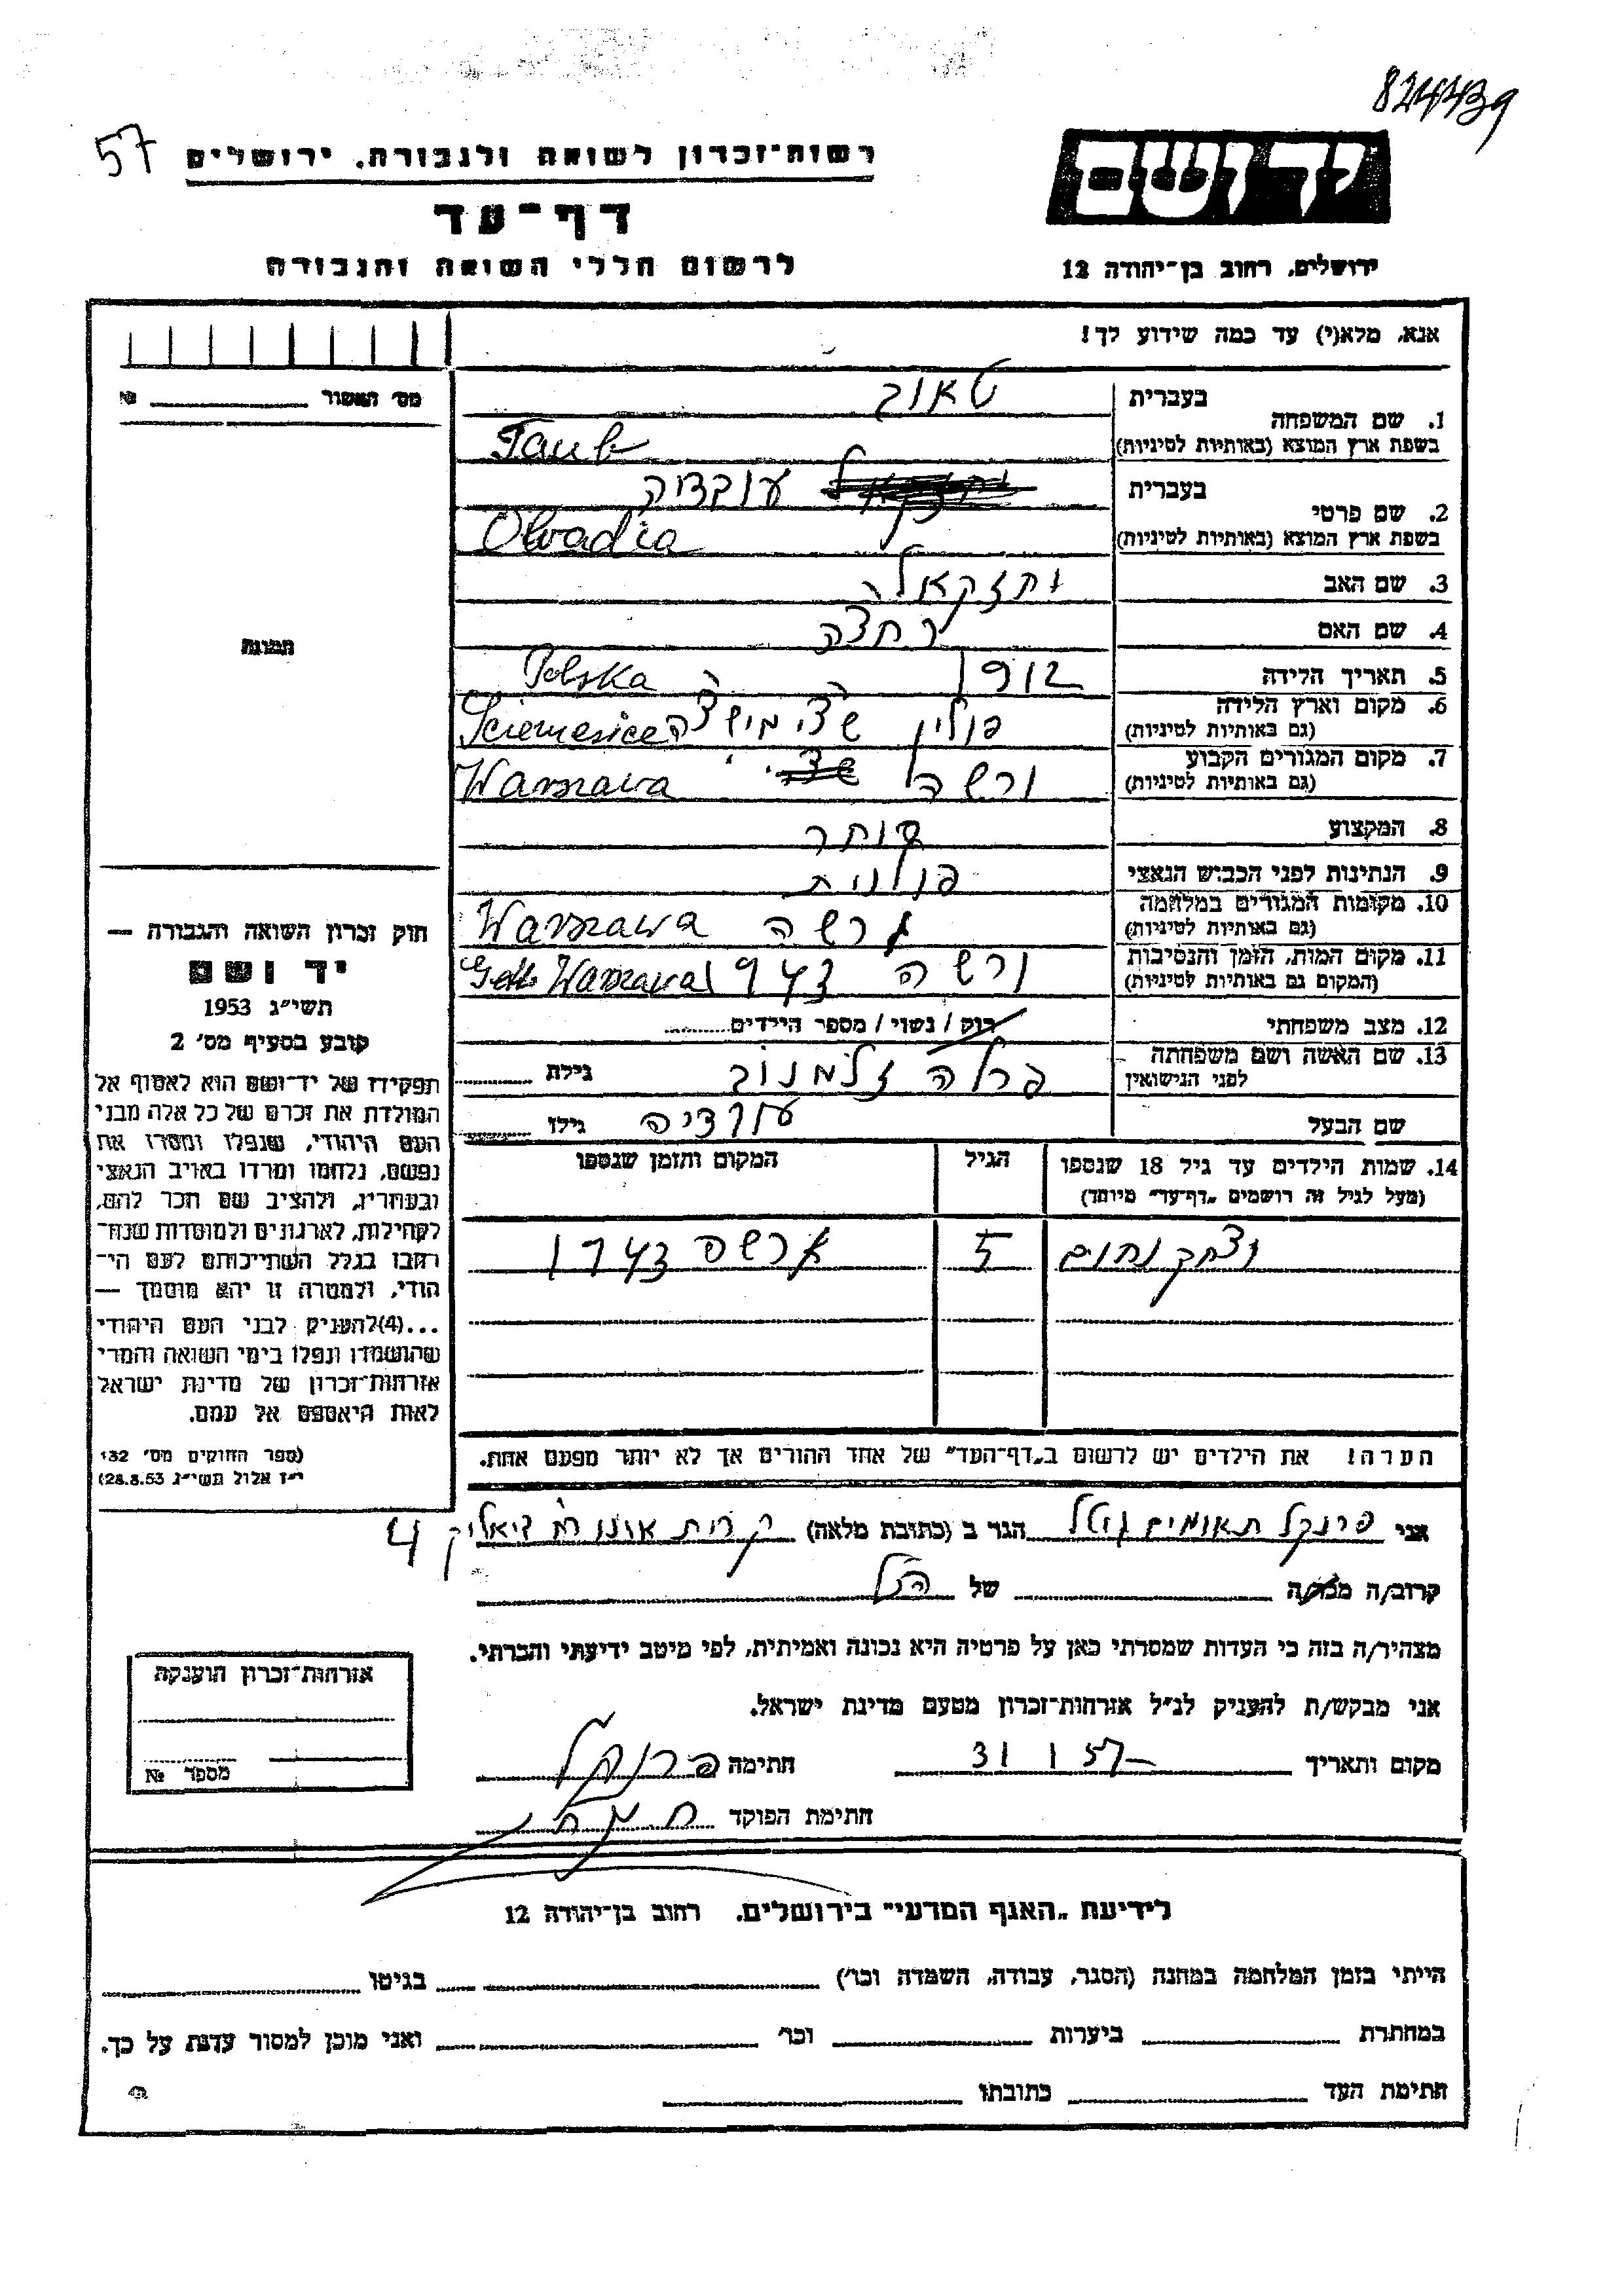 824439
57
רשות־זכרון לשואה ולגבורה, ירושלים
יד ושם
דף־עד
לרשום חללי השואה והגבורה
ירושלים, רחוב בן־יהודה 12
אנא, מלא(י) עד כמה שידוע לך!
מס' האשור №
1. שם המשפחה
בעברית טאוב
בשפת ארץ המוצא (באותיות לטיניות) Taub
2. שם פרטי
בעברית עובדיה
בשפת ארץ המוצא (באותיות לטיניות) Obvadia
3. שם האב יחזקאל
4. שם האם
5. תאריך הלידה 1912 Polska
6. מקום וארץ הלידה
(גם באותיות לטיניות) פולין
7. מקום המגורים הקבוע
(גם באותיות לטיניות) ורשה Warszawa
8. המקצוע סוחר
9. הנתינות לפני הכבוש הנאצי פולנית
10. מקומות המגורים במלחמה
(גם באותיות לטיניות) ורשה Warszawa
11. מקום המות, הזמן והנסיבות
(המקום גם באותיות לטיניות) ורשה 1943 Getto Warszawa
12. מצב משפחתי רוק / נשוי / מספר הילדים
13. שם האשה ושם משפחתה
לפני הנישואין פרלה זלמנוב גילה
שם הבעל עובדיה גילו
14. שמות הילדים עד גיל 18 שנספו
(מעל לגיל זה רושמים „דף־עד" מיוחד)
הגיל
המקום והזמן שנספו
יצחק נחום 5 ורשה 1943
הערה! את הילדים יש לרשום ב„דף־העד" של אחד ההורים אך לא יותר מפעם אחת.
תמונה
חוק זכרון השואה והגבורה —
יד ושם
תשי"ג 1953
קובע בסעיף מס' 2
תפקידו של יד־ושם הוא לאסוף אל
המולדת את זכרם של כל אלה מבני
העם היהודי, שנפלו ומסרו את
נפשם, נלחמו ומרדו באויב הנאצי
ובעוזריו, ולהציב שם וזכר להם,
לקהילות, לארגונים ולמוסדות שנח־
רבו בגלל השתייכותם לעם הי־
הודי, ולמטרה זו יהא מוסמך —
...(4) להעניק לבני העם היהודי
שהושמדו ונפלו בימי השואה והמרי
אזרחות־זכרון של מדינת ישראל
לאות היאספם אל עמם.
(ספר החוקים מס' 132
י"ז אלול תשי"ג 28.8.53)
אני פרנקל תאומים גיטל הגר ב (כתובת מלאה) קרית אונו 4
קרוב/ה מכר/ה של הנ"ל
מצהיר/ה בזה כי העדות שמסרתי כאן על פרטיה היא נכונה ואמיתית, לפי מיטב ידיעתי והכרתי.
אני מבקש/ת להעניק לנ"ל אזרחות־זכרון מטעם מדינת ישראל.
מקום ותאריך 31 1 57 חתימה פרנקל
חתימת הפוקד
אזרחות־זכרון הוענקה
מספר №
לידיעת „האגף המדעי" בירושלים, רחוב בן־יהודה 12
הייתי בזמן המלחמה במחנה (הסגר, עבודה, השמדה וכר') בגיטו
במחתרת ביערות וכר' ואני מוכן למסור עדות על כך.
חתימת העד כתובתו